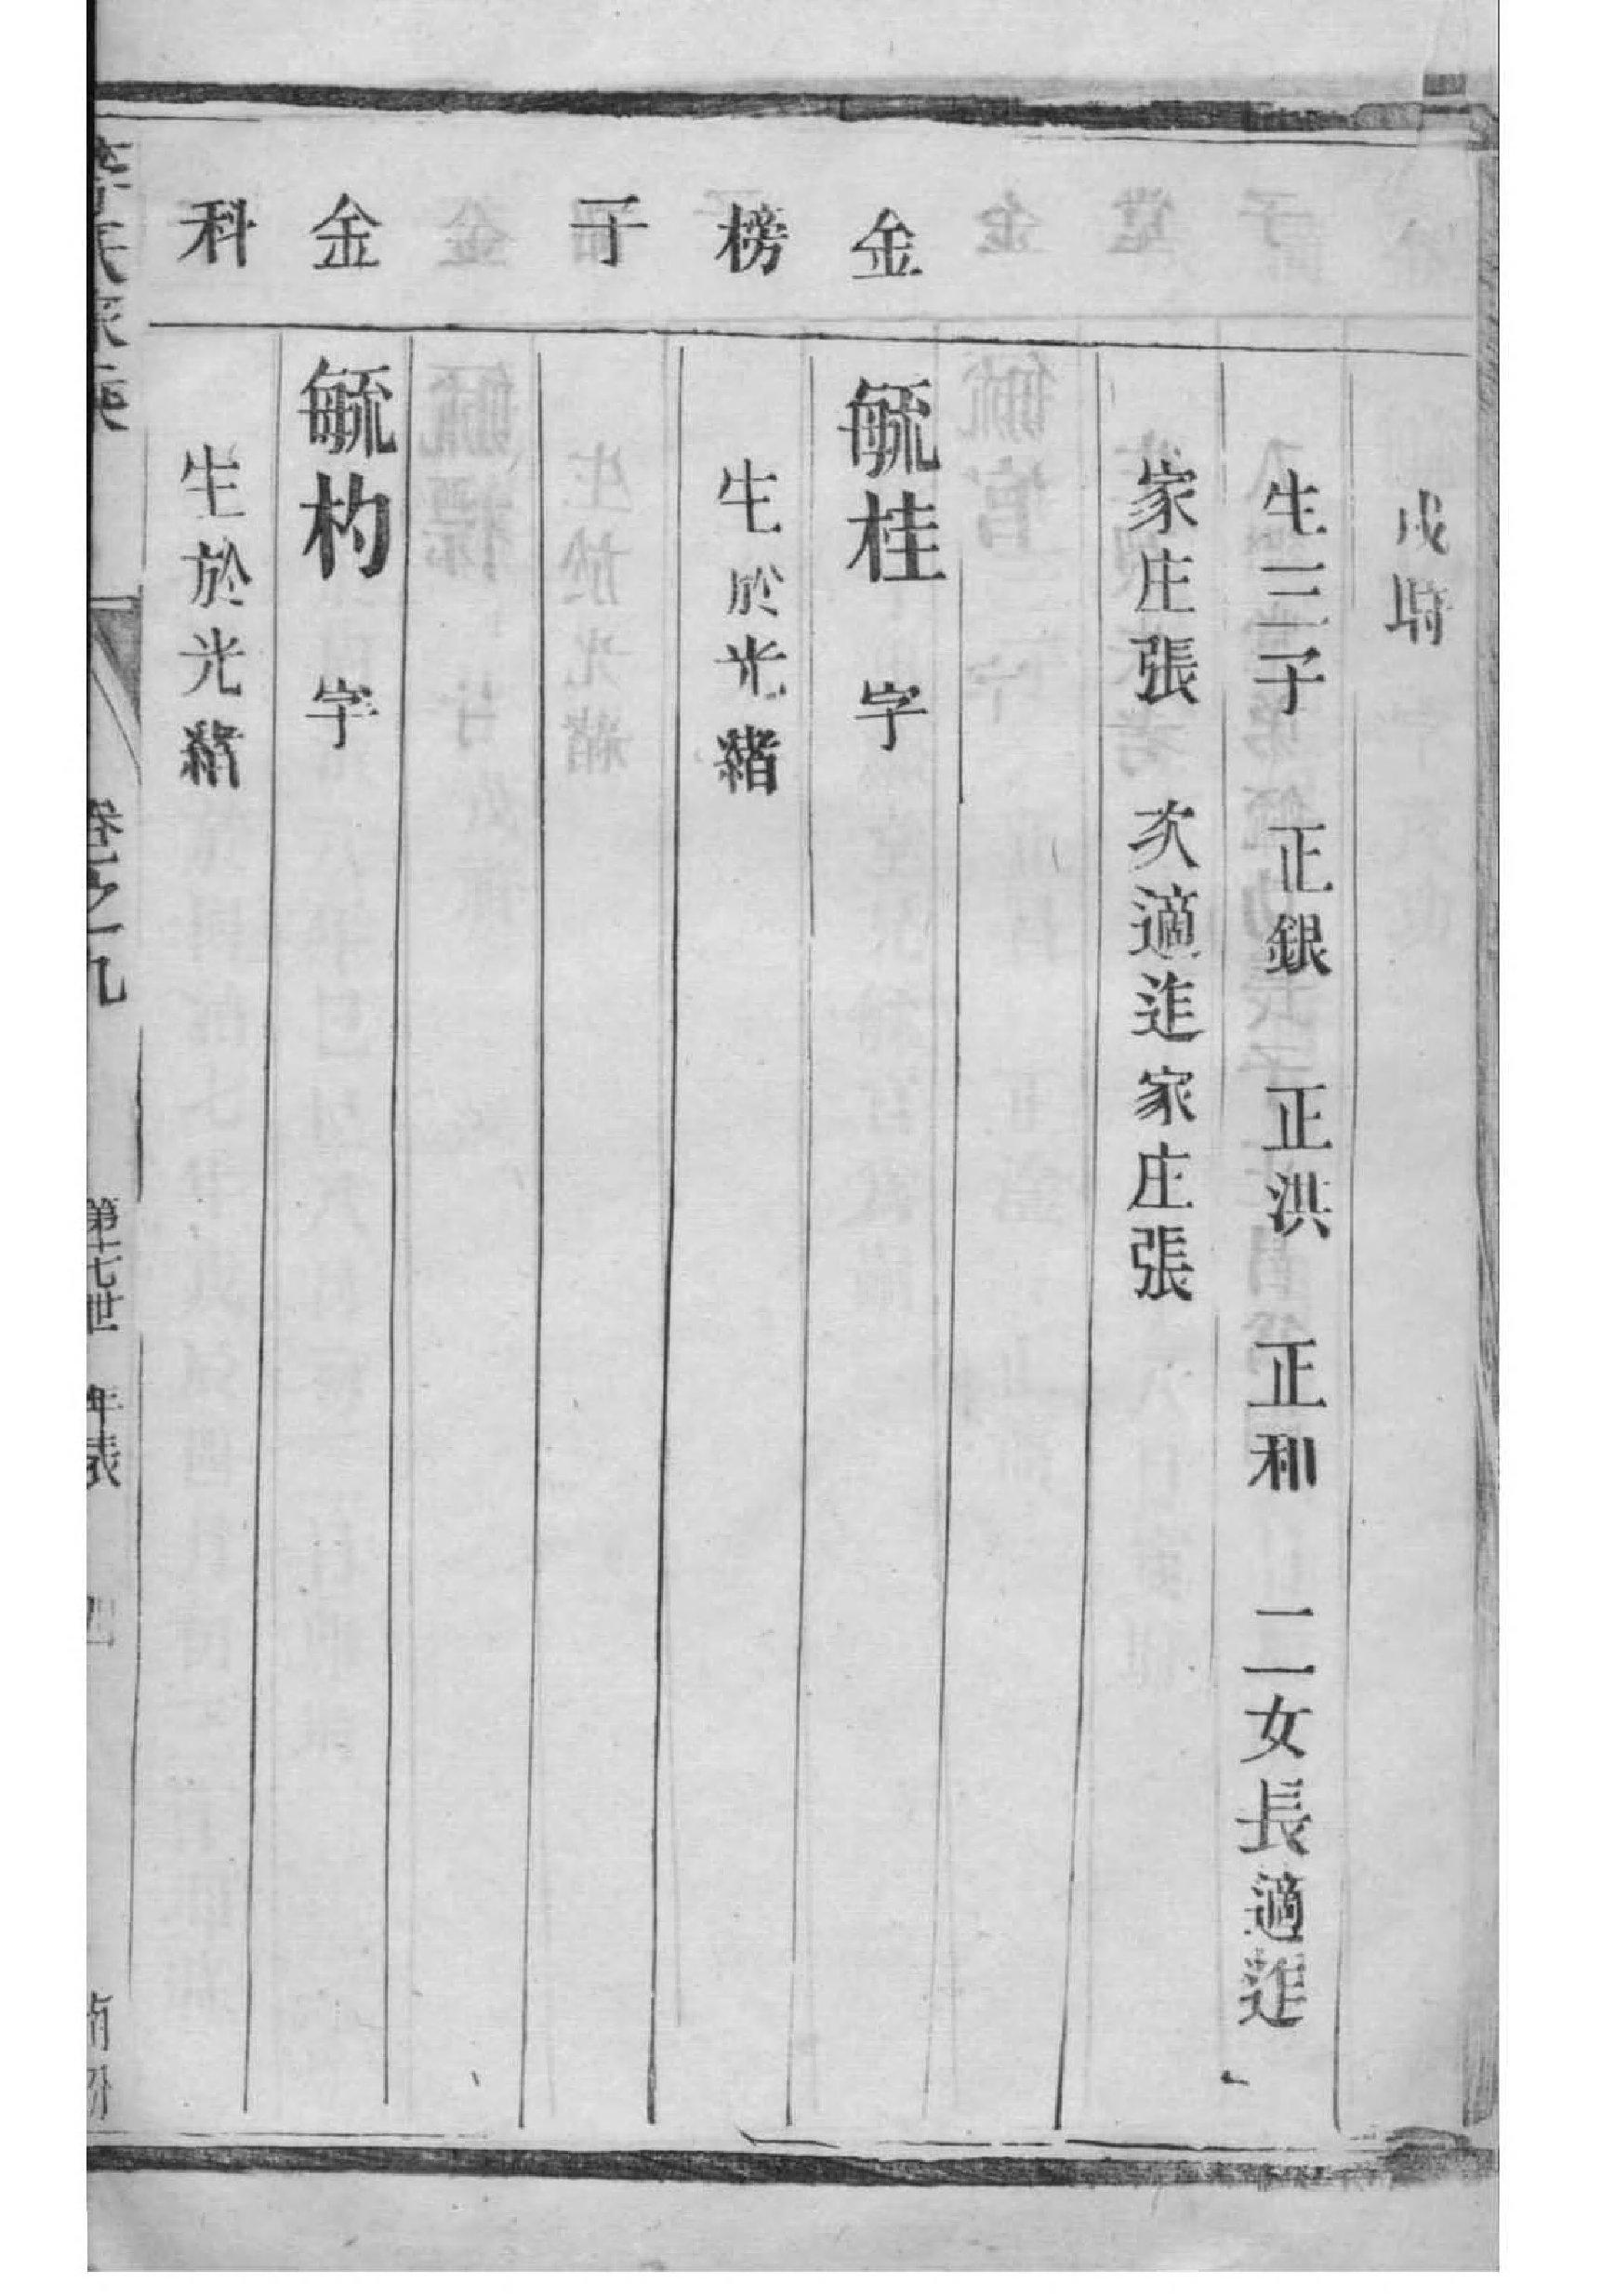 戌時
生三子 正銀 正洪 正和 二女長適迮
家庄張 次適迮家庄張
金 毓桂 字
榜 生於光緒
子
金 毓杓 字
科 生於光緒
卷之九 第十七世 年表 四